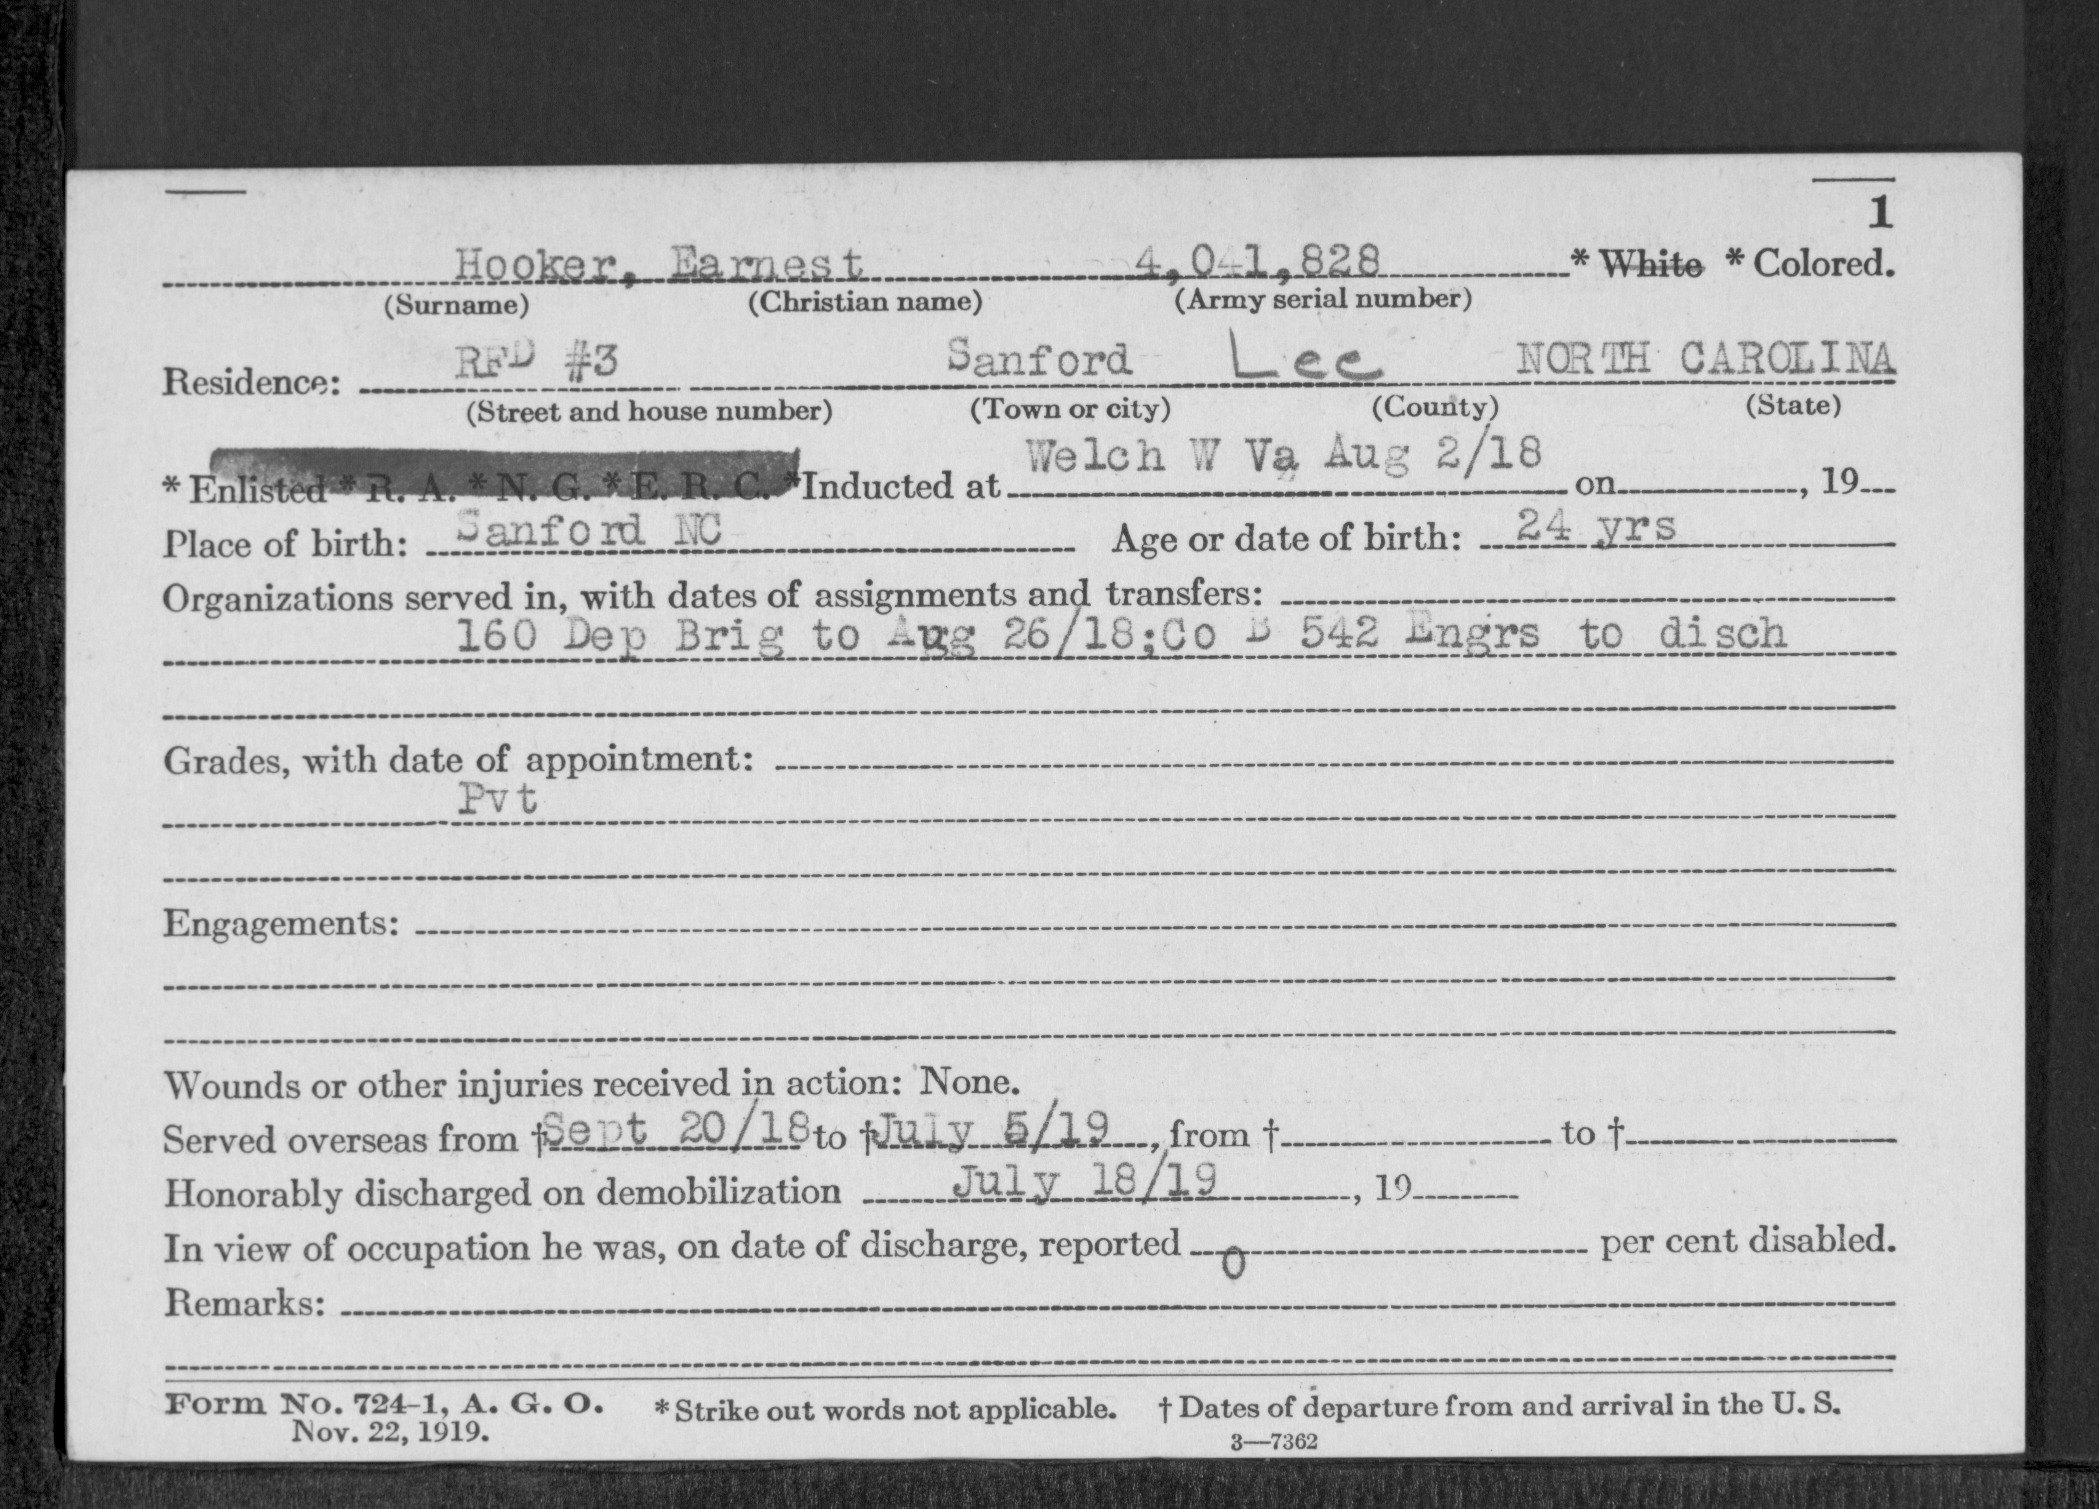 1
Hooker, Earnest 4,041,828 * White * Colored.
(Surname) (Christian name) (Army serial number)
Residence: RFD #3 Sanford Lee NORTH CAROLINA
(Street and house number) (Town or city) (County) (State)
* Enlisted * R. A. * N. G. * E. R. C. * Inducted at Welch W Va Aug 2/18 on , 19
Place of birth: Sanford NC Age or date of birth: 24 yrs
Organizations served in, with dates of assignments and transfers:
160 Dep Brig to Aug 26/18;Co B 542 Engrs to disch
Grades, with date of appointment:
Pvt
Engagements:
Wounds or other injuries received in action: None.
Served overseas from † Sept 20/18 to † July 5/19, from † to †
Honorably discharged on demobilization July 18/19, 19
In view of occupation he was, on date of discharge, reported 0 per cent disabled.
Remarks:
Form No. 724-1, A. G. O. * Strike out words not applicable. † Dates of departure from and arrival in the U. S.
Nov. 22, 1919. 3—7362